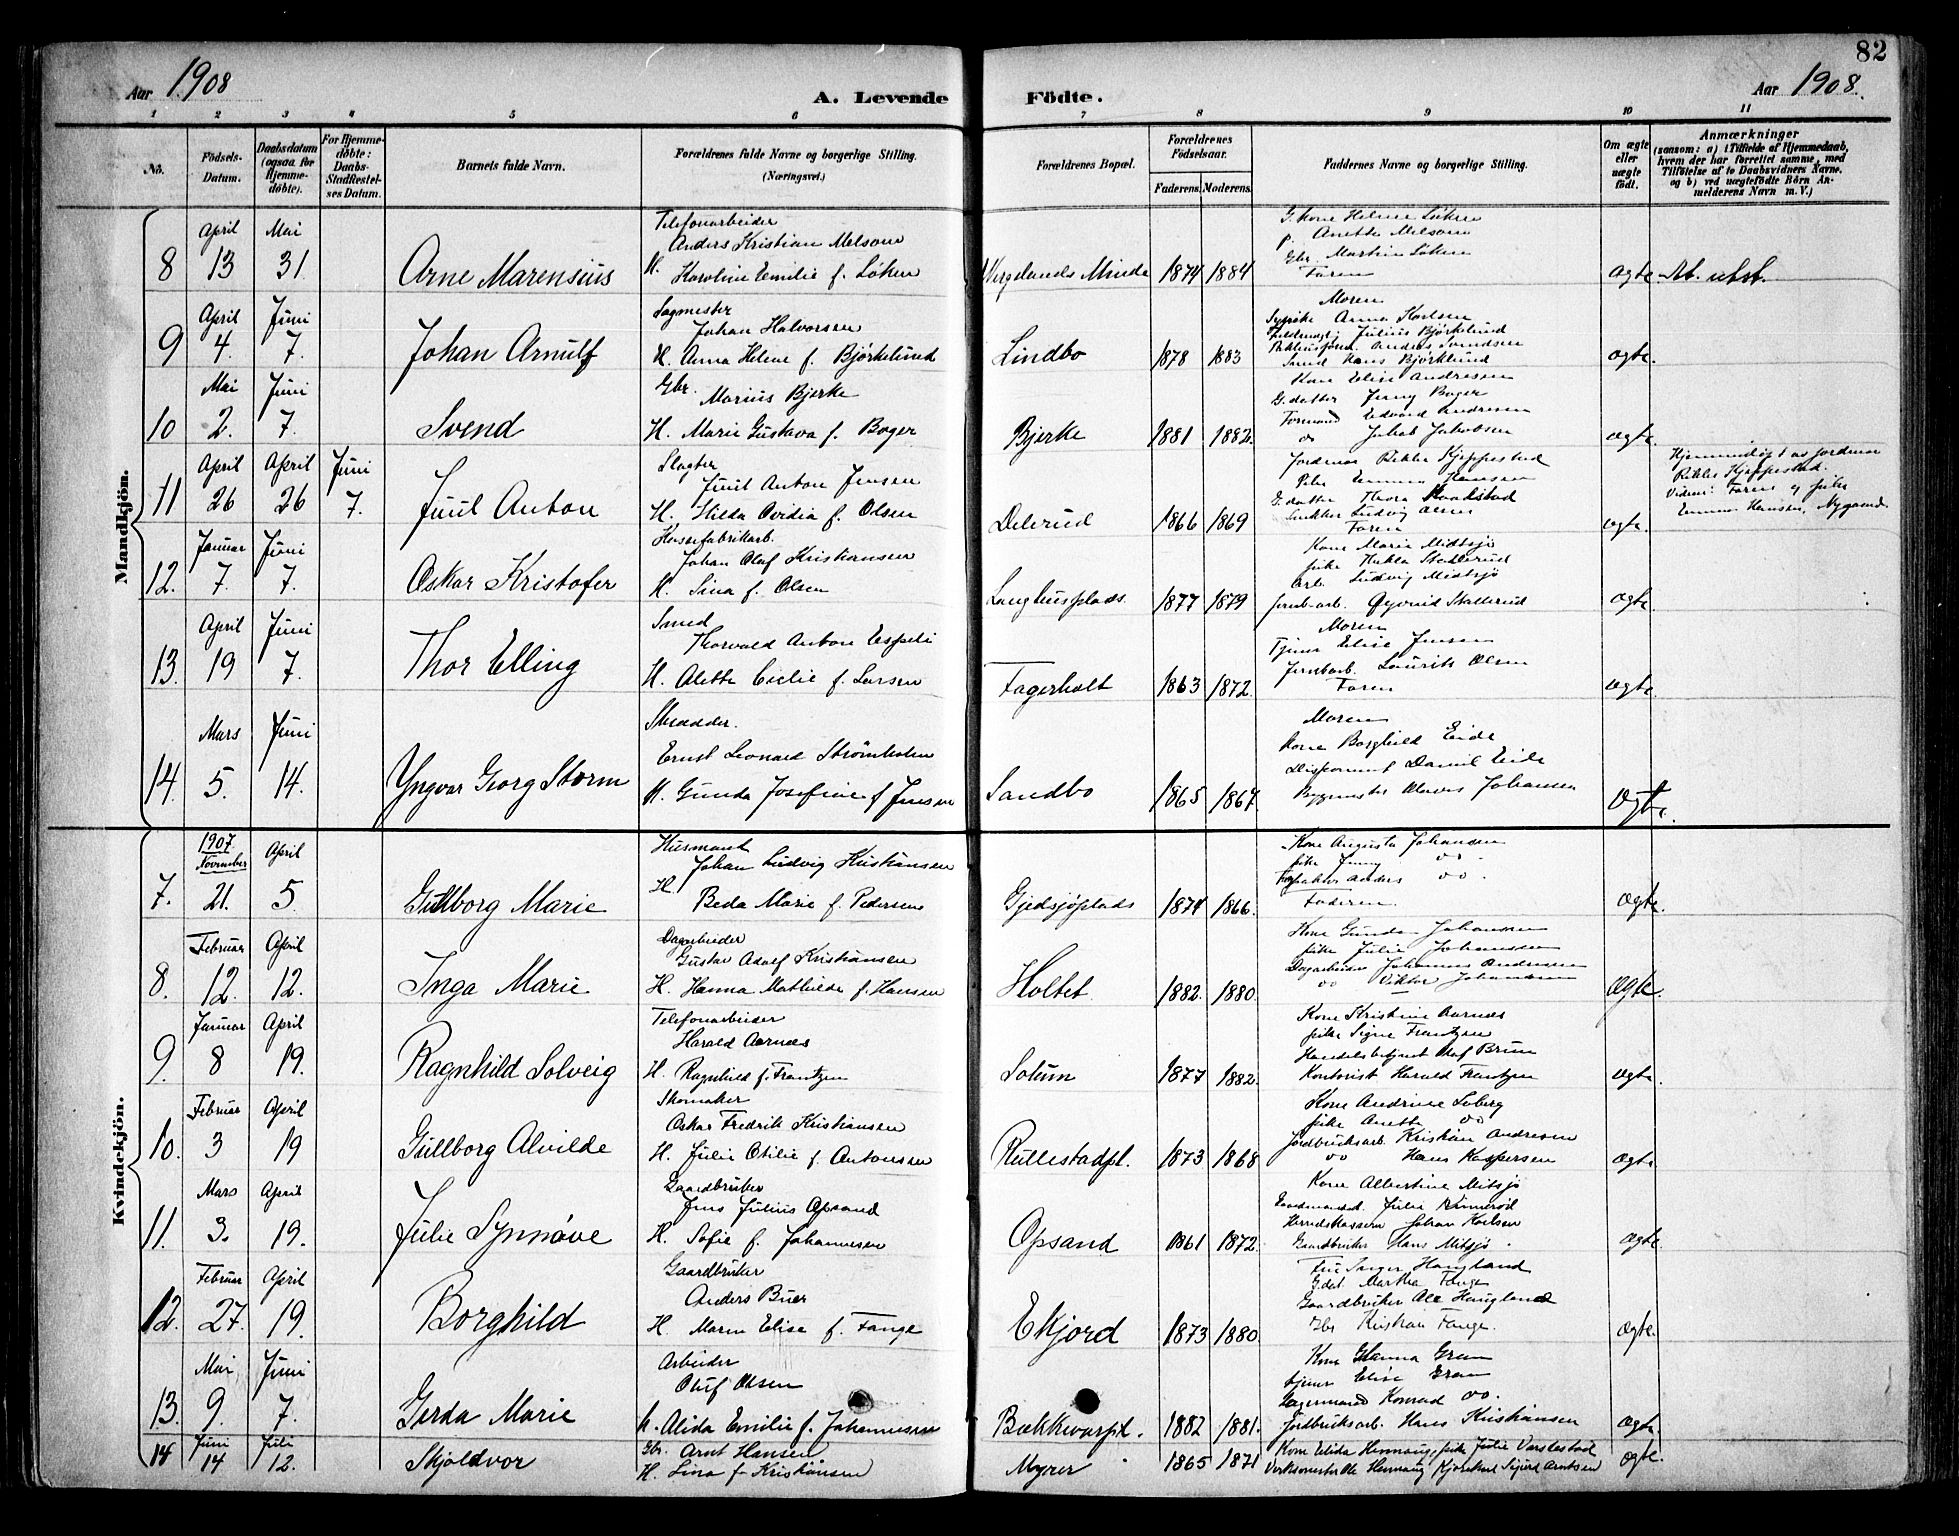 82
Aar 1908
A. Levende Födte.
Aar 1908.
1 2 3 4 5 6 7 8 9 10 11
No.
Födsels-Datum.
Daabsdatum (ogsaa for Hjemme-döbte).
For Hjemme-döbte: Daabs-Stadfæstel-ses Datum.
Barnets fulde Navn.
Forældrenes fulde Navne og borgerlige Stilling. (Næringsvei.)
Forældrenes Bopæl.
Forældrenes Födselsaar.
Faderens. Moderens.
Faddernes Navne og borgerlige Stilling.
Om ægte eller uægte födt.
Anmærkninger
(saasom: a) i Tilfælde af Hjemmedaab, hvem der har forrettet samme, med Tilföielse af to Daabsvidners Navne, og b) ved uægtefödte Börn An-melderens Navn m. V.)
Mandkjön.
8 April 13 Mai 31. Arne Marensius
Telefonarbeider
Anders Kristian Melsom
H. Karoline Emilie f. Löken
Wergelands Minde 1874 1884
G. kone Helene Löken
p. Anette Melsom
Gbr. Martin Löken
Faren
ægte. At. utst.
9 April 4. Juni 7. Johan Arnulf
Sagmester
Johan Halvorsen
H. Anna Helene f. Björkelund
Lindbo 1878 1883
Moren
Sypike Anna Karlsen
Julius Björkelund
Anders Svendsen
Smed Hans Björklund
ægte.
10 Mai 2. Juni 7. Svend
Gbr. Marius Bjerke
H. Marie Gustava f. Boger
Bjerke 1881 1882.
Kone Elise Andressen
G. datter Jenny Boger
Formand Edvard Andresen
do Jakob Jakobsen
ægte.
11 April 26 April 26 Juni 7. Juul Anton
Slagter
Juul Anton Jensen
H. Hilda Ovidia f. Olsen
Delerud 1866 1869
Jordmor Rikke Kjeppestad
Pike Emma Hansen
G. datter Thora Raadstad
Snekker Ludvig Olsen
Faren
ægte.
Hjemmedöpt av jordmor
Rikke Kjeppestad.
Vidner: Faren og pike
Emma Hansen, Nygaard
12. Januar 7. Juni 7. Oskar Kristofer
Hessefabrikarb.
Johan Olaf Kristiansen
H. Lina f. Olsen
Langhusplads. 1877 1879
Kone Marie Midtsjö
pike Hulda Skallerud
Arb. Ludvig Midtsjö
jernb.arb. Öyvind Skallerud
ægte.
13. April 19 Juni 7. Thor Elling
Smed
Thorvald Anton Espeli
H. Alette Cicilie f. Larsen
Fagerholt 1863 1872.
Moren
Tjener Elise Jensen
Jernbarb. Laurits Olsen
Faren
ægte.
14. Mars 5. Juni 14. Yngvar Georg Storm
Skrædder.
Ernst Leonard Strömholm
H. Gunda Josefine f. Jensen
Sandbo 1865 1867
Moren
Kone Borghild Eide
Disponent Daniel Eide
Bygmester Johansen
Ægte.
Kvindekjön.
7. 1907. November 21. April 5. Gullborg Marie
Husmand
Johan Ludvig Kristiansen
H. Beda Marie f. Pedersen
Gjedsjöplads 1874 1866.
Kone Augusta Johansen
pike Jenny do
Anders do.
Faderen.
Ægte.
8. Februar 12. April 12. Inga Marie
Dagarbeider
Gustav Adolf Kristiansen
H. Hanna Mathilde f. Hansen
Holtet 1882. 1880.
Kone Gunda Johansen
pike Julie Johanssen
Dagarbeider Johannes Andresen
do Viktor Johansen
Ægte.
9. Januar 8 April 19. Ragnhild Solveig
Telefonarbeider
Harald Aarnæs
H. Ragnhild f. Frantzen
Solum 1877 1882.
Kone Kristine Aarnæs
pike Signe Frantzen
Handelsbetjent Olaf Bruun
Kontorist Harald Frantzen
ægte.
10. Februar 3 April 19 Gullborg Alvilde
Skomaker
Oskar Fredrik Kristiansen
H. Julie Otilie f. Antonsen
Rullestadpl. 1873 1868
Kone Andrine Soberg
pike Anette do
Jordbruksarb. Kristian Andresen
do Hans Kaspersen
Ægte.
11. Mars 3. April 19. Julie Synnöve
Gaardbruker
Jens Julius Opsand
H. Sofie f. Johannesen
Opsand 1861 1872.
Kone Albertine Mitsjö
Julie Rimeröd
Herredskasserer Johan Karlsen
Gaardbruker Hans Mitsjö.
ægte.
12. Februar 27. April 19. Borghild
Gaardbruker
Anders Buer
H. Maren Elise f. Fange
Ekjord 1873 1880
Fru Inger Haugland
G.dat. Martha Fange
Gaardbruker Ole Haugland
Gbr Kristian Fange.
Ægte.
13. Mai 9. Juni 7. Gerda Marie
Arbeider
Oluf Olsen
H. Alida Emilie f. Johannesen
Bækkevarpl. 1882 1881.
Kone Hanna Gran
tjener Elise Gran
Lagermand Konrad do.
Jordbruksarb. Hans Kristiansen
Ægte.
14 Juni 14 Juli 12. Skjoldvor
Gbr. Arnt Hansen
H. Lina f. Kristiansen
Myrer 1865 1871
Kone Elida Hennang, pike Julie Varslestad
Verksmester Ole Hennang, Sigurd Arntsen
Ægte.